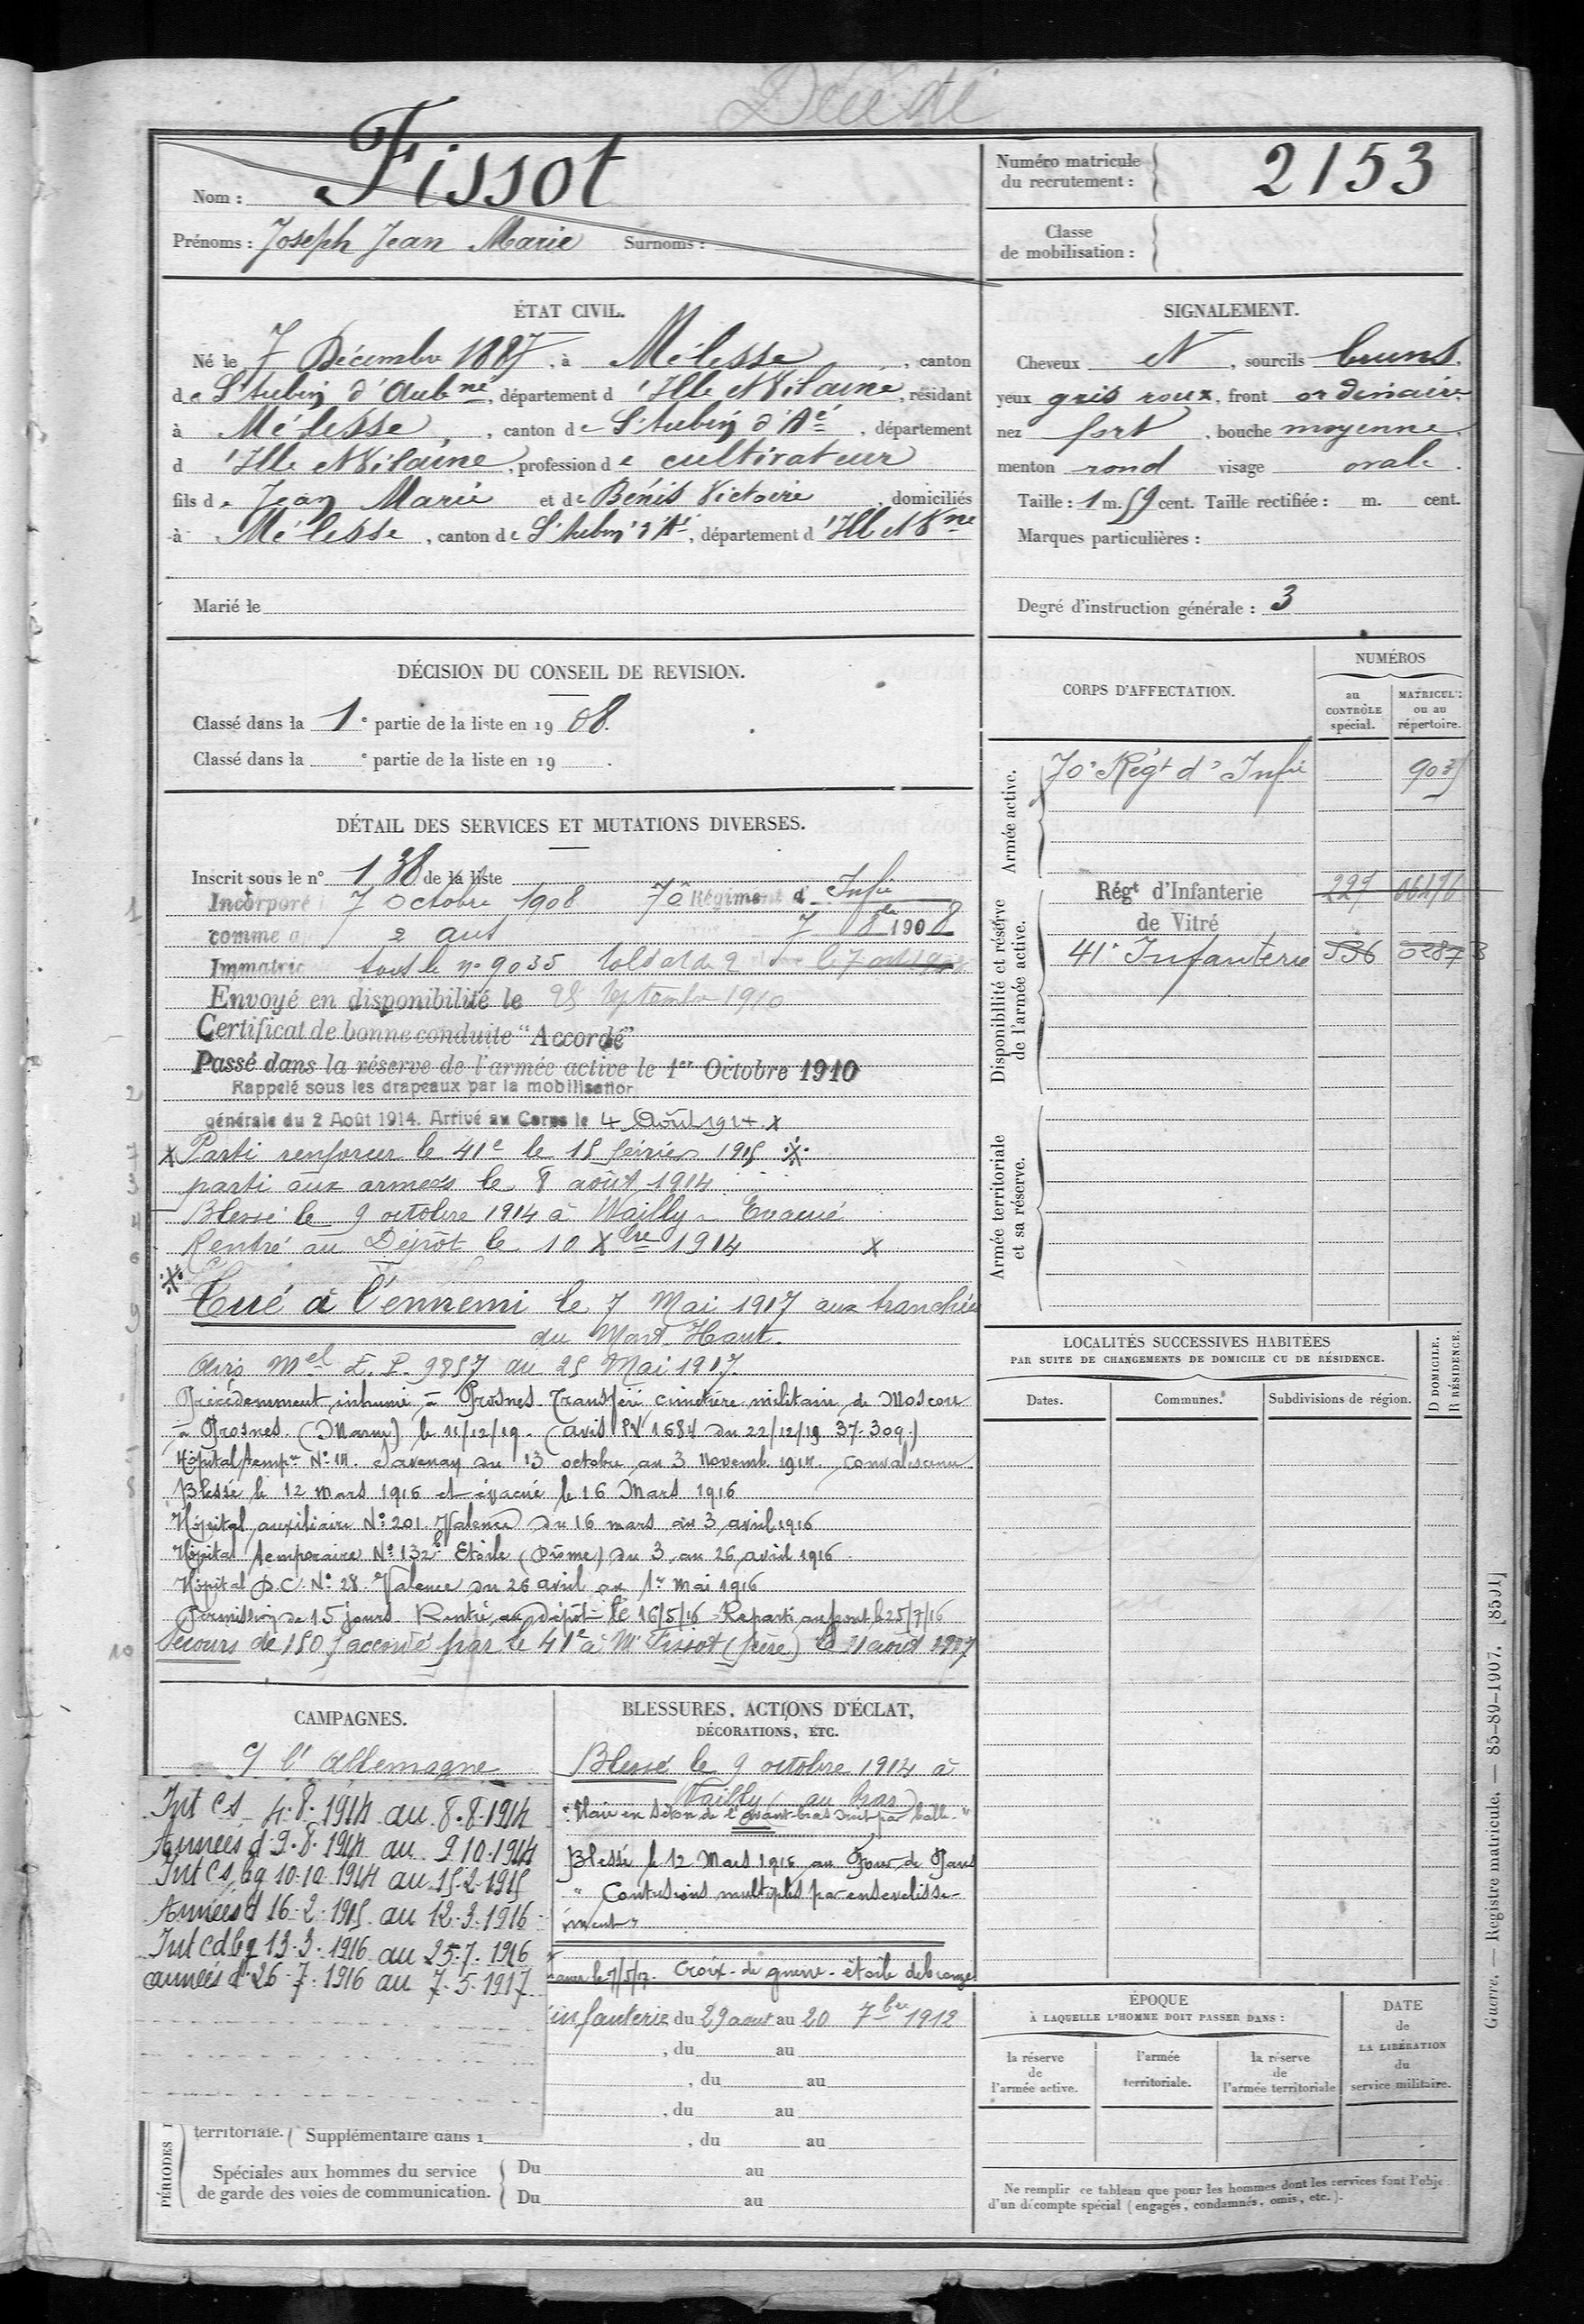 Décédé
Nom : Fissot
Prénoms : Joseph Jean Marie Surnoms :
Numéro matricule du recrutement : 2153
Classe de mobilisation :
ÉTAT CIVIL.
Né le 7 Décembre 1887, à Mélesse, canton
de St Aubin d'Aubné, département d'Ille et Vilaine, résidant
à Mélesse, canton de St Aubin d'Aé, département
d'Ille et Vilaine, profession de cultivateur
fils de Jean Marie et de Bénis Victoire, domiciliés
à Mélesse, canton de St Aubin d'Aé, département d'Ill et Vne
Marié le
SIGNALEMENT.
Cheveux N, sourcils bruns,
yeux gris roux, front ordinaire
nez fort, bouche moyenne,
menton rond visage ovale.
Taille : 1 m. 59 cent. Taille rectifiée : m. cent.
Marques particulières :
Degré d'instruction générale : 3
DÉCISION DU CONSEIL DE REVISION.
Classé dans la 1e partie de la liste en 1908.
Classé dans la e partie de la liste en 19 .
DÉTAIL DES SERVICES ET MUTATIONS DIVERSES.
Inscrit sous le n° 138 de la liste
1 Incorporé 7 octobre 1908 70 Régiment d'Infie
comme a 2 ans 7 8bre 1908
Immatric sous le n° 9035 soldat de 2 le 7 oct
Envoyé en disponibilité le 25 Septembre 1910
Certificat de bonne conduite "Accordé"
Passé dans la réserve de l'armée active le 1er Octobre 1910
2 Rappelé sous les drapeaux par la mobilisation
générale du 2 Août 1914. Arrivé au Corps le 4 Août 1914 x
x Parti renforcer le 41e le 15 février 1915
3 parti aux armées le 8 août 1914
4 Blessé le 9 octobre 1914 à Wailly - Evacué
6 Rentré au Dépôt le 10 Xbre 1914 x
9 Tué à l'ennemi le 7 Mai 1917 aux tranchées
du Mont Haut.
Avis Mel E.P. 9857 du 25 Mai 1917.
Précédemment inhumé à Prosnes. Transféré cimetière militaire de Moscou
à Prosnes. (Marne) le 11/12/19. (avis PV 1684 du 22/12/19 37-309.)
5 Hôpital tempre N° 14. Savenay du 13 octobre au 3 Novemb. 1914. convalescence
8 Blessé le 12 mars 1916 et évacué le 16 Mars 1916
Hôpital auxiliaire N° 201. Valence du 16 mars au 3 avril 1916
Hôpital temporaire N° 132b Etoile (Drôme) du 3 au 26 avril 1916.
Hôpital D.C. N° 28. Valence du 26 avril au 1er mai 1916
Permission de 15 jours. Rentré au dépôt le 16/5/16 Reparti au front le 25/7/16
10 Secours de 150 f accordé par le 41e à Mr Fissot (père) le 21 août 1917
CORPS D'AFFECTATION.
NUMÉROS
au CONTRÔLE spécial.
MATRICULE ou au répertoire.
Armée active.
70e Régt d'Infie 9035
Disponibilité et réserve de l'armée active.
Régt d'Infanterie de Vitré 227 06476
41e Infanterie 536 02873
Armée territoriale et sa réserve.
LOCALITÉS SUCCESSIVES HABITÉES
PAR SUITE DE CHANGEMENTS DE DOMICILE OU DE RÉSIDENCE.
Dates. Communes. Subdivisions de région.
D DOMICILE.
R RÉSIDENCE.
CAMPAGNES.
c/ l'Allemagne
Int cs 4.8.1914 au 8.8.1914
Armées d 9.8.1914 au 9.10.1914
Int cs bg 10.10.1914 au 15.2.1915
Armées d 16.2.1915 au 12.3.1916
Int cd bg 13.3.1916 au 25.7.1916
armées d 26.7.1916 au 7.5.1917.
BLESSURES, ACTIONS D'ÉCLAT,
DÉCORATIONS, ETC.
Blessé le 9 octobre 1914 à
Wailly (au bras)
"Plaie en séton de l'avant-bras droit par balle"
Blessé le 12 Mars 1916 au Four de Paris
"Contusions multiples par ensevelisse-
ment"
le 7/5/17. Croix de guerre - étoile de bronze
infanterie du 29 aout au 20 7bre 1912
, du au
, du au
, du au
territoriale. Supplémentaire dans l , du au
PÉRIODES
Spéciales aux hommes du service
de garde des voies de communication.
Du au
Du au
ÉPOQUE
À LAQUELLE L'HOMME DOIT PASSER DANS :
la réserve de l'armée active.
l'armée territoriale.
la réserve de l'armée territoriale
DATE de LA LIBÉRATION du service militaire.
Ne remplir ce tableau que pour les hommes dont les services font l'obje
d'un décompte spécial (engagés, condamnés, omis, etc.).
Guerre. — Registre matricule. — 85-89-1907. [8591]